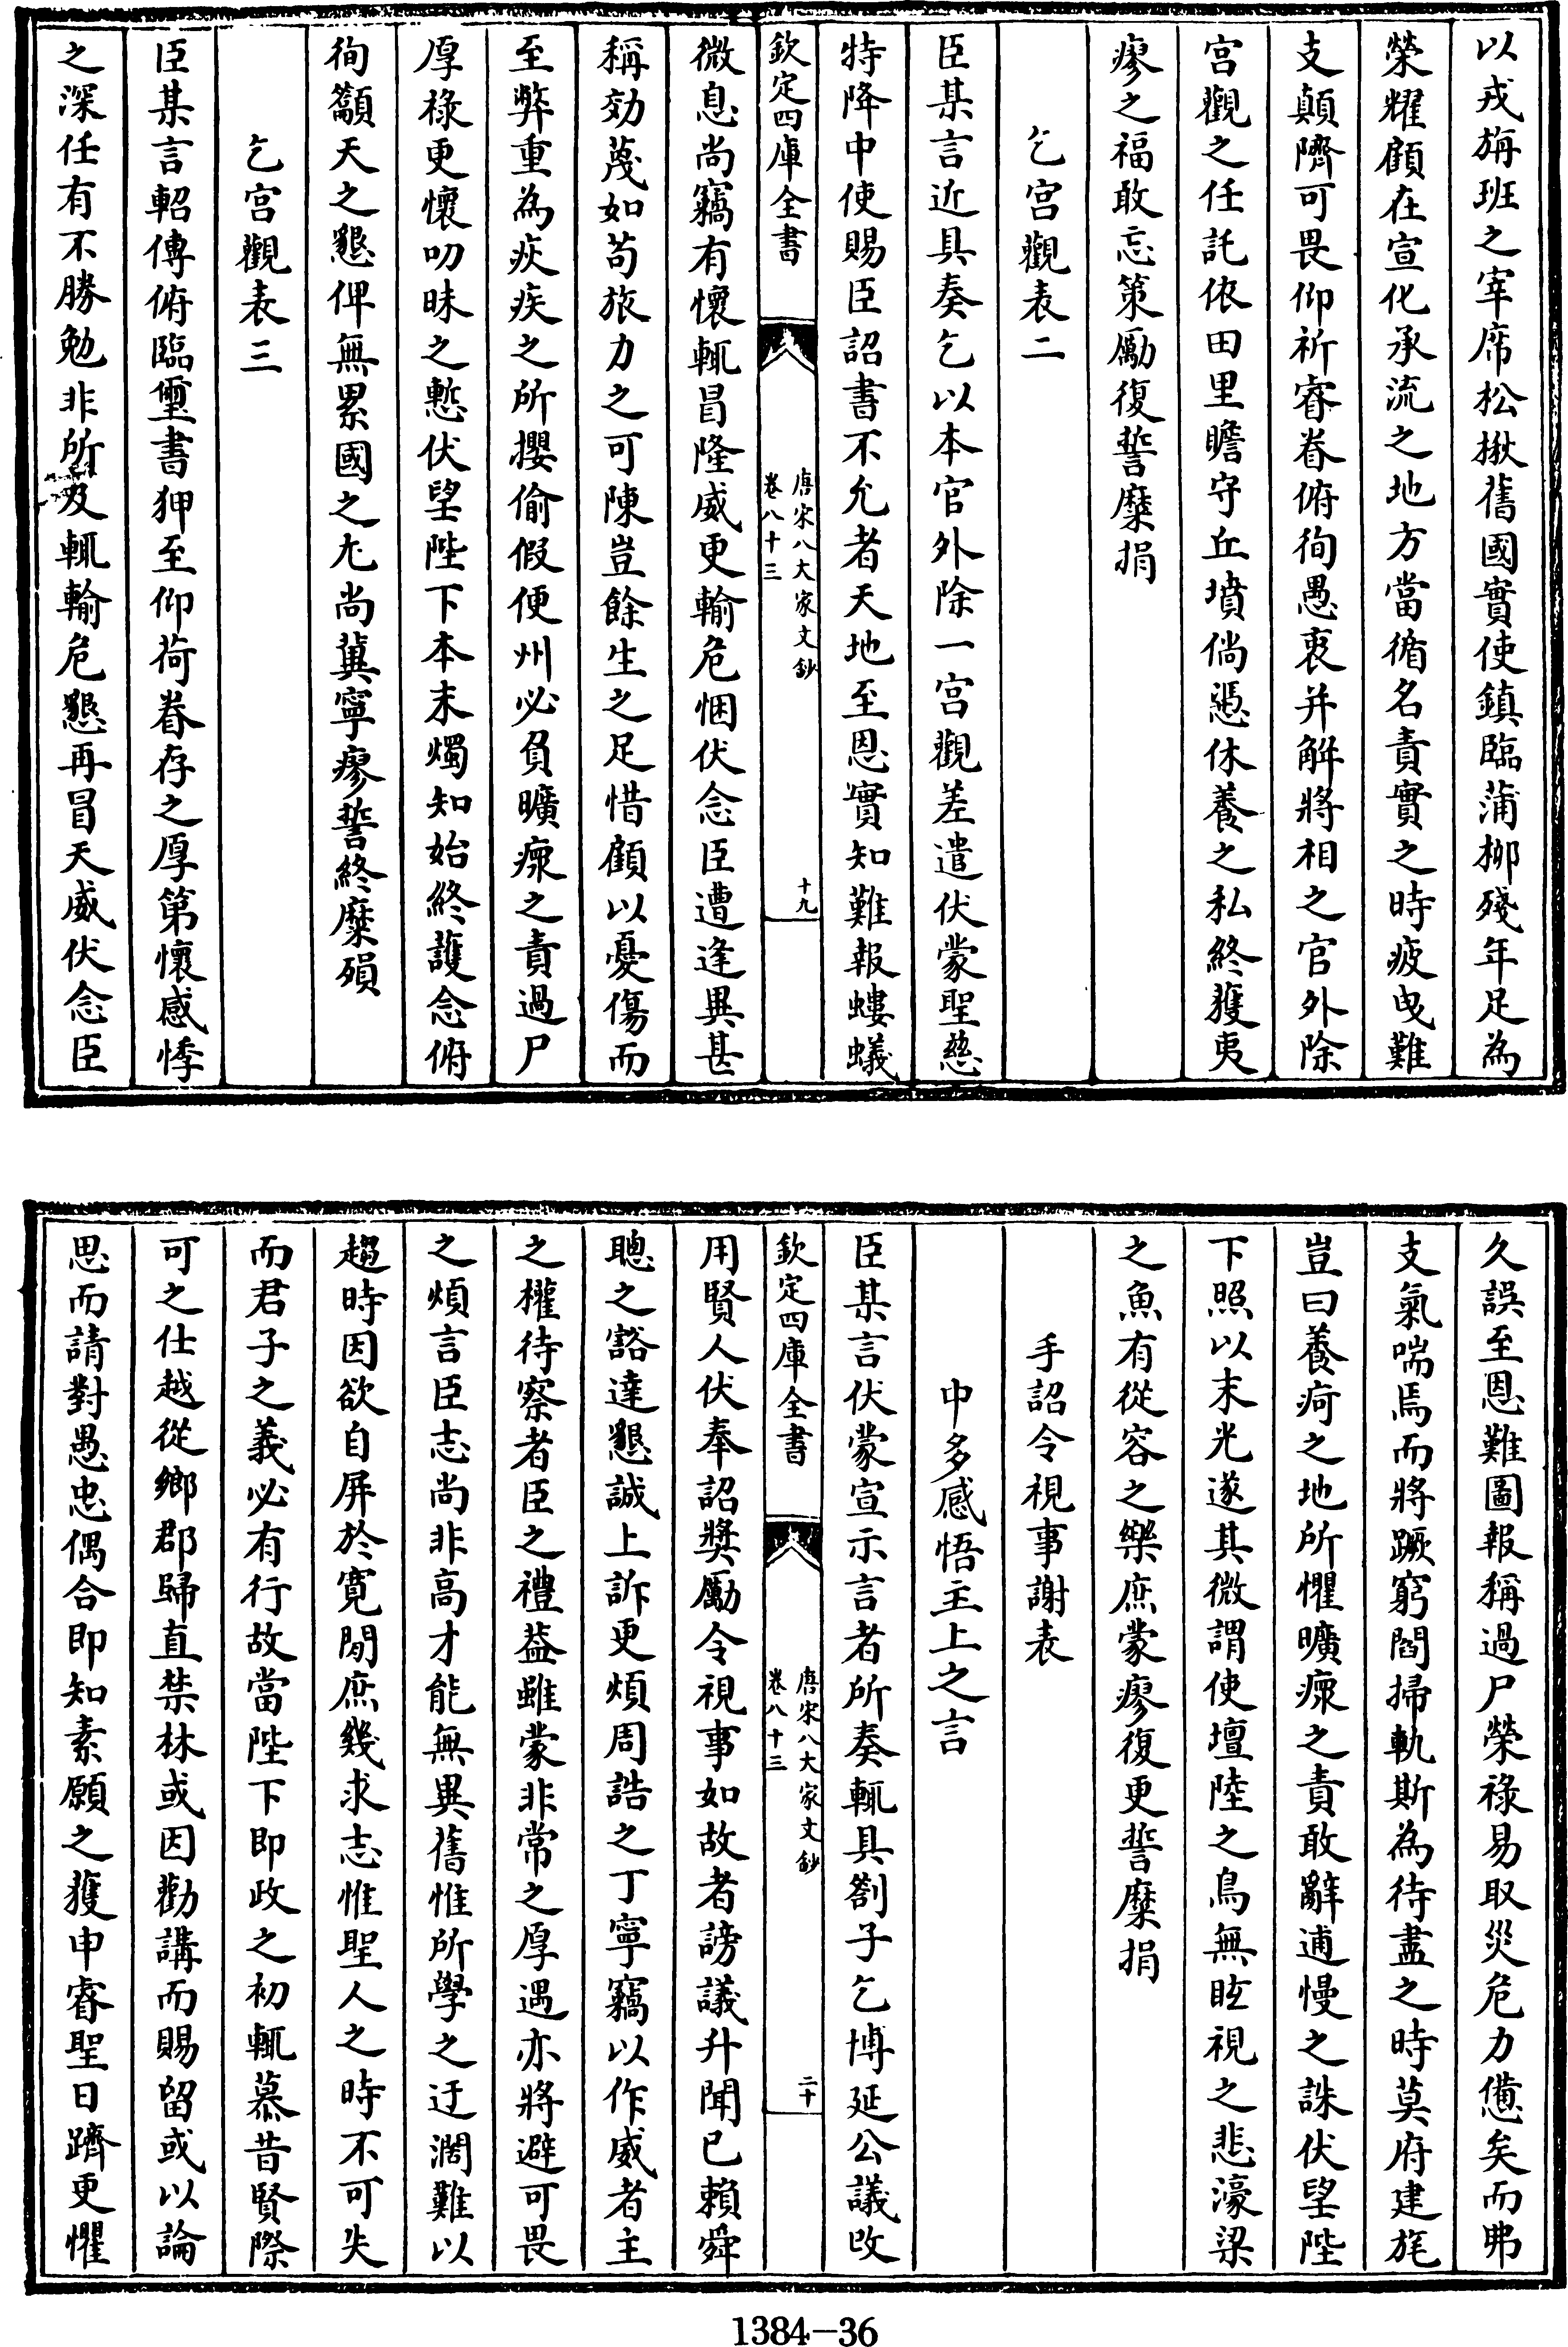 以戎旃班之宰席松楸舊國實使鎮臨蒲柳殘年足為
榮耀顧在宣化承流之地方當循名責實之時疲曳難
支顛隮可畏仰祈睿眷俯徇愚衷并解將相之官外除
宮觀之任託依田里瞻守丘墳倘憑休養之私終獲夷
瘳之福敢忘策勵復誓糜捐
乞宮觀表二
臣某言近具奏乞以本官外除一宮觀差遣伏蒙聖慈
特降中使賜臣詔書不允者天地至恩實知難報螻蟻
欽定四庫全書
唐宋八大家文鈔
卷八十三
十九
微息尚竊有懷輒冒隆威更輸危悃伏念臣遭逢異甚
稱効蔑如苟旅力之可陳豈餘生之足惜顧以憂傷而
至弊重為疢疾之所攖偷假便州必負曠瘝之責過尸
厚祿更懷叨昧之慙伏望陛下本末燭知始終護念俯
徇籲天之懇俾無累國之尤尚冀寧瘳誓終糜殞
乞宮觀表三
臣某言軺傳俯臨璽書狎至仰荷眷存之厚第懷感悸
之深任有不勝勉非所及輒輸危懇再冒天威伏念臣
久誤至恩難圖報稱過尸榮祿易取災危力憊矣而弗
支氣喘焉而將蹶窮閻掃軌斯為待盡之時莫府建旄
豈曰養疴之地所懼曠瘝之責敢辭逋慢之誅伏望陛
下照以末光遂其微謂使壇陸之鳥無眩視之悲濠梁
之魚有從容之樂庶蒙瘳復更誓糜捐
手詔令視事謝表
中多感悟主上之言
臣某言伏蒙宣示言者所奏輒具劄子乞博延公議改
欽定四庫全書
唐宋八大家文鈔
卷八十三
二十
用賢人伏奉詔獎勵令視事如故者謗議升聞已賴舜
聰之豁達懇誠上訴更煩周誥之丁寧竊以作威者主
之權待察者臣之禮葢雖蒙非常之厚遇亦將避可畏
之煩言臣志尚非高才能無異舊惟所學之迂濶難以
趨時因欲自屏於寬閒庶幾求志惟聖人之時不可失
而君子之義必有行故當陛下即政之初輒慕昔賢際
可之仕越從鄉郡歸直禁林或因勸講而賜留或以論
思而請對愚忠偶合即知素願之獲申睿聖日躋更懼
1384—36